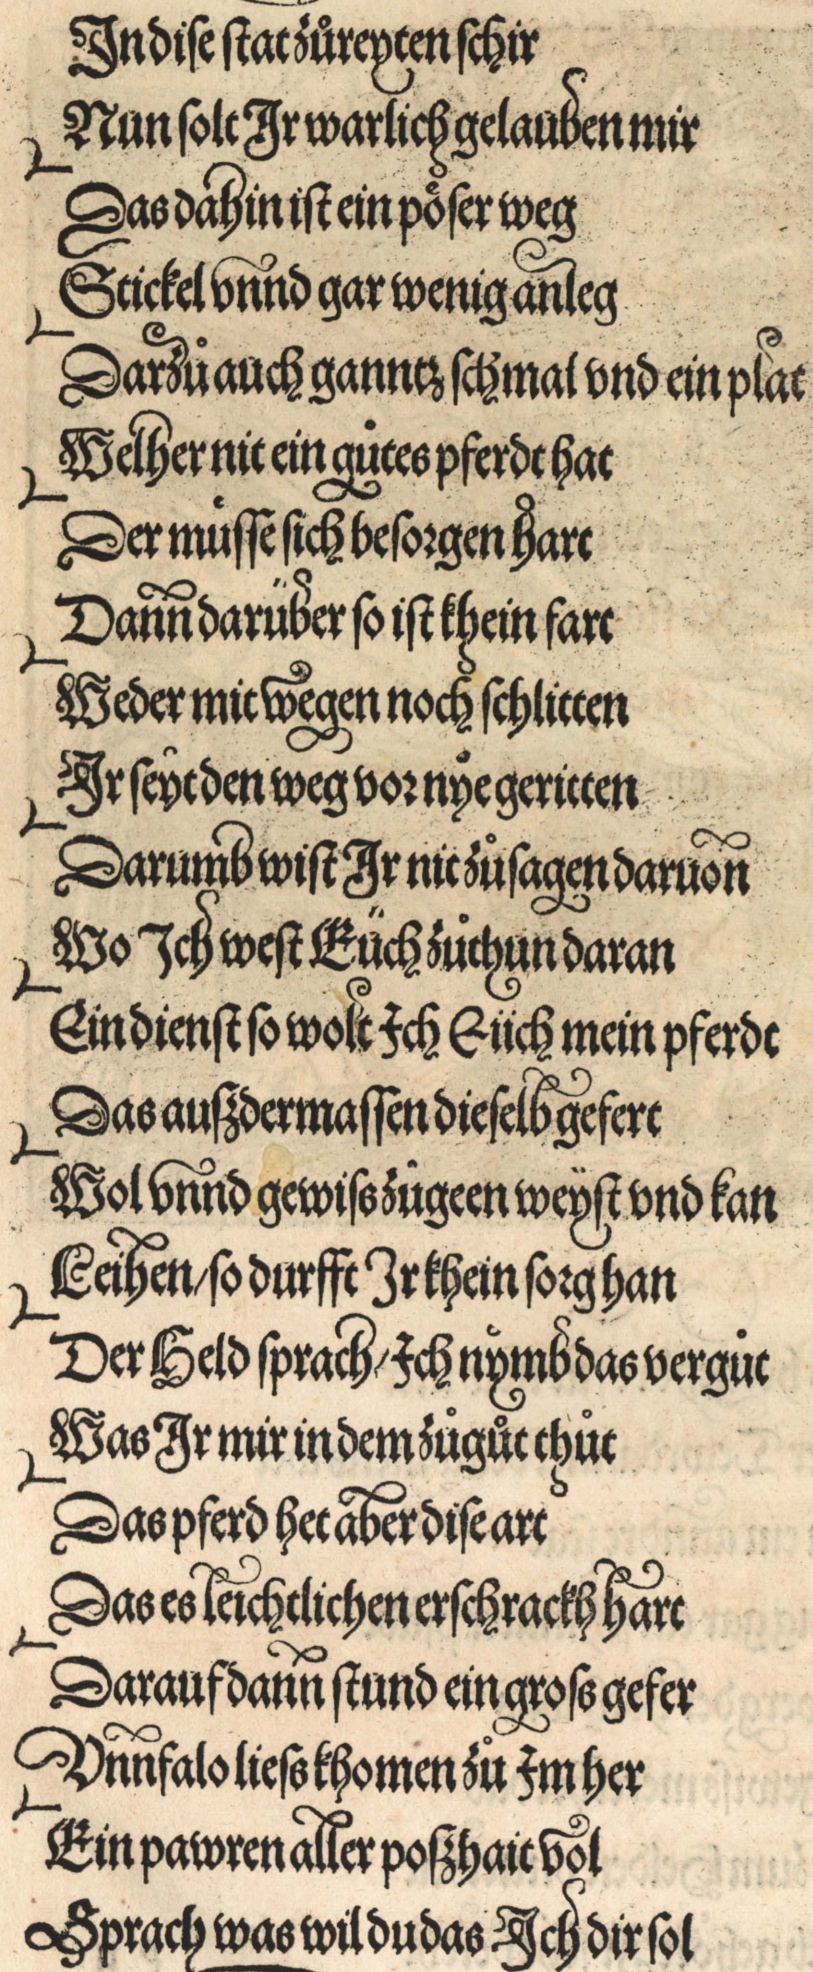 In dise stat zůreyten schir
Nun solt Ir warlich gelauben mir
Das dahin ist ein pöser weg
Stickel vnnd gar wenig anleg
Darzů auch ganntz schmal vnd ein plat
Welher nit ein gůtes pferdt hat
Der můsse sich besorgen hart
Dann darüber so ist khein fart
Weder mit wegen noch schlitten
Ir seyt den weg vor nye geritten
Darumb wist Ir nit zůsagen daruon
Wo Ich west Eüch zůthun daran
Ein dienst so wolt Ich Eüch mein pferdt
Das auszdermassen dieselb gefert
Wol vnnd gewiss zůgeen weyst vnd kan
Leihen/so durfft Ir khein sorg han
Der Held sprach/Ich nymb das vergůt
Was Ir mir in dem zůgůt thůt
Das pferd het aber dise art
Das es leichtlichen erschrackh hart
Darauf dann stund ein gross gefer
Vnnfalo liess khomen zů Im her
Ein pawren aller poszhait vol
Sprach was wildu das Ich dir sol